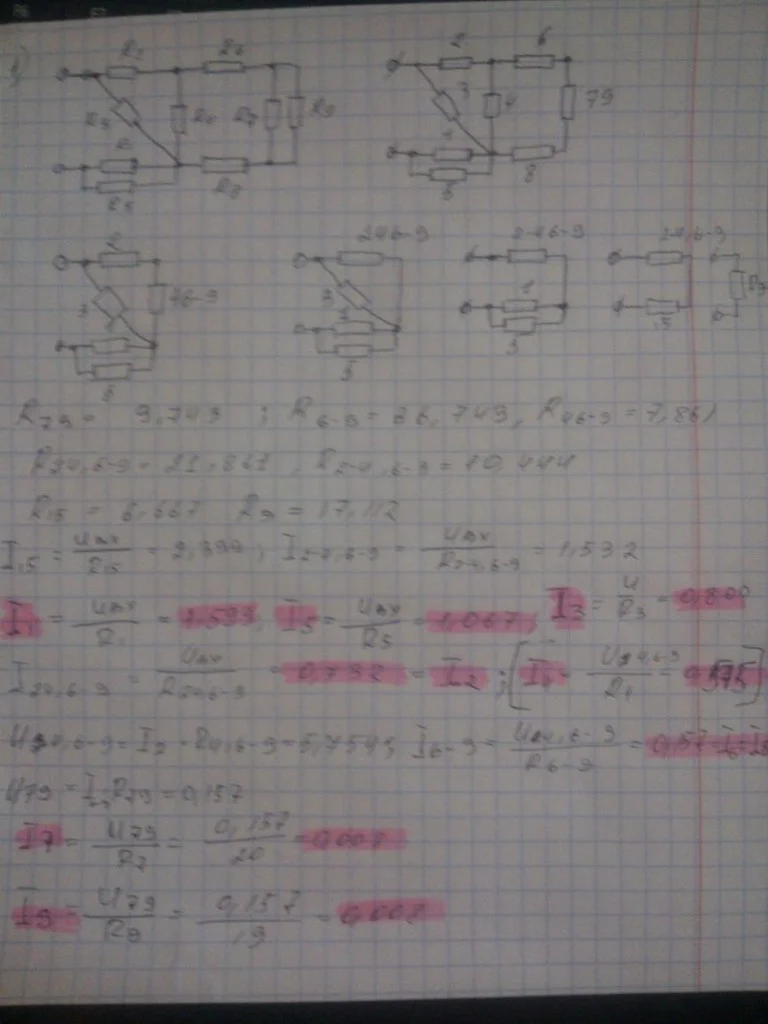 1)
R2 R6
R3 R4 R7 R9
R8
2 6
3 4 79
5 8
2 246-9 2-46-9 24,6-9
3 46-9 3 1 R э
5 5 3 15
R79 = 9,743 ; R6-9 = 36,743, R46-9 = 7,861
R24,6-9 = 21,861 , R2-4,6-9 = 10,444
R15 = 6,667 Rэ = 17,112
I15 = Uвх / R15 = 2,399 ; I2-4,6-9 = Uвх / R2-4,6-9 = 1,532
I1 = Uвх / R1 = 1,599, I5 = Uвх / R5 = 1,067, I3 = U / R3 = 0,800
I24,6-9 = Uвх / R24,6-9 = 0,732 = I2 ; [I4 = U24,6-9 / R4 = 0,575]
U24,6-9 = I2 · R4,6-9 = 5,754 ; I6-9 = U24,6-9 / R6-9 = 0,157 = I6 = I8
U79 = I · R79 = 0,157
I7 = U79 / R7 = 0,157 / 20 = 0,008
I9 = U79 / R9 = 0,157 / 19 = 0,008